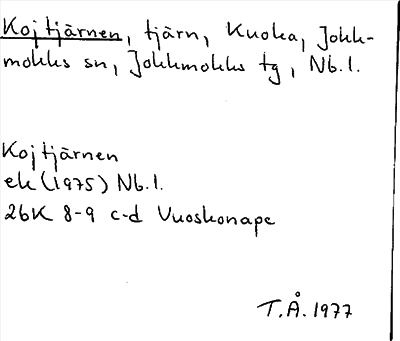 Kojtjärnen, tjärn, Kuoka, Jokk-
mokks sn, Jokkmokks tg, Nb.l.
Kojtjärnen
ek (1975) Nb.l.
26K 8-9 c-d Vuoskonape
T.Å. 1977